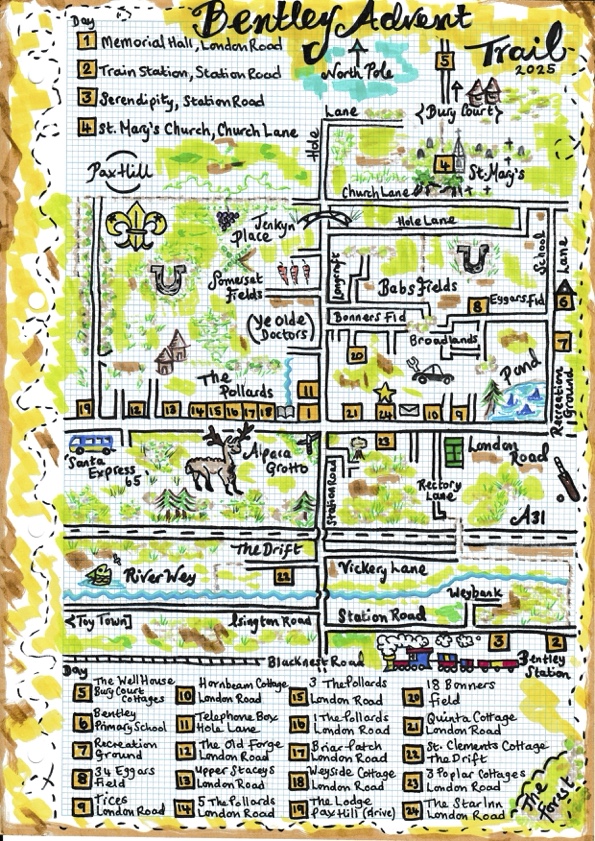 Bentley Advent
Trail
2025
Day
1 Memorial Hall, London Road
2 Train Station, Station Road
3 Serendipity, Station Road
4 St. Mary's Church, Church Lane
North Pole
5
{Bury Court}
Lane
Hole
4
St. Mary's
Church Lane
Pax Hill
Jenkyn
Place
Hole Lane
School
Lane
Somerset
Fields
Longcroft
Babs Fields
8
Eggars Fld
6
(Ye olde
Doctors)
Bonners Fld
Broadlands
7
20
Pond
Recreation
Ground
The
Pollards
11
19
12
13
14
15
16
17
18
1
21
24
10
9
Santa
Express
65
Alpaca
Grotto
23
London
Road
Station Road
Rectory
Lane
A31
The Drift
Vickery Lane
River Wey
22
Weybank
<Toy Town]
Isington Road
Station Road
3
2
Blacknest Road
Bentley
Station
Day
5 The Well House
Bury Court
Cottages
6 Bentley
Primary School
7 Recreation
Ground
8 34 Eggars
Field
9 Tices
London Road
10 Hornbeam Cottage
London Road
11 Telephone Box
Hole Lane
12 The Old Forge
London Road
13 Upper Staceys
London Road
14 5 The Pollards
London Road
15 3 The Pollards
London Road
16 1 The Pollards
London Road
17 Briar Patch
London Road
18 Wayside Cottage
London Road
19 The Lodge
Pax Hill (drive)
20 18 Bonners
Field
21 Quinta Cottage
London Road
22 St. Clements Cottage
The Drift
23 3 Poplar Cottages
London Road
24 The Star Inn
London Road
The
Forest